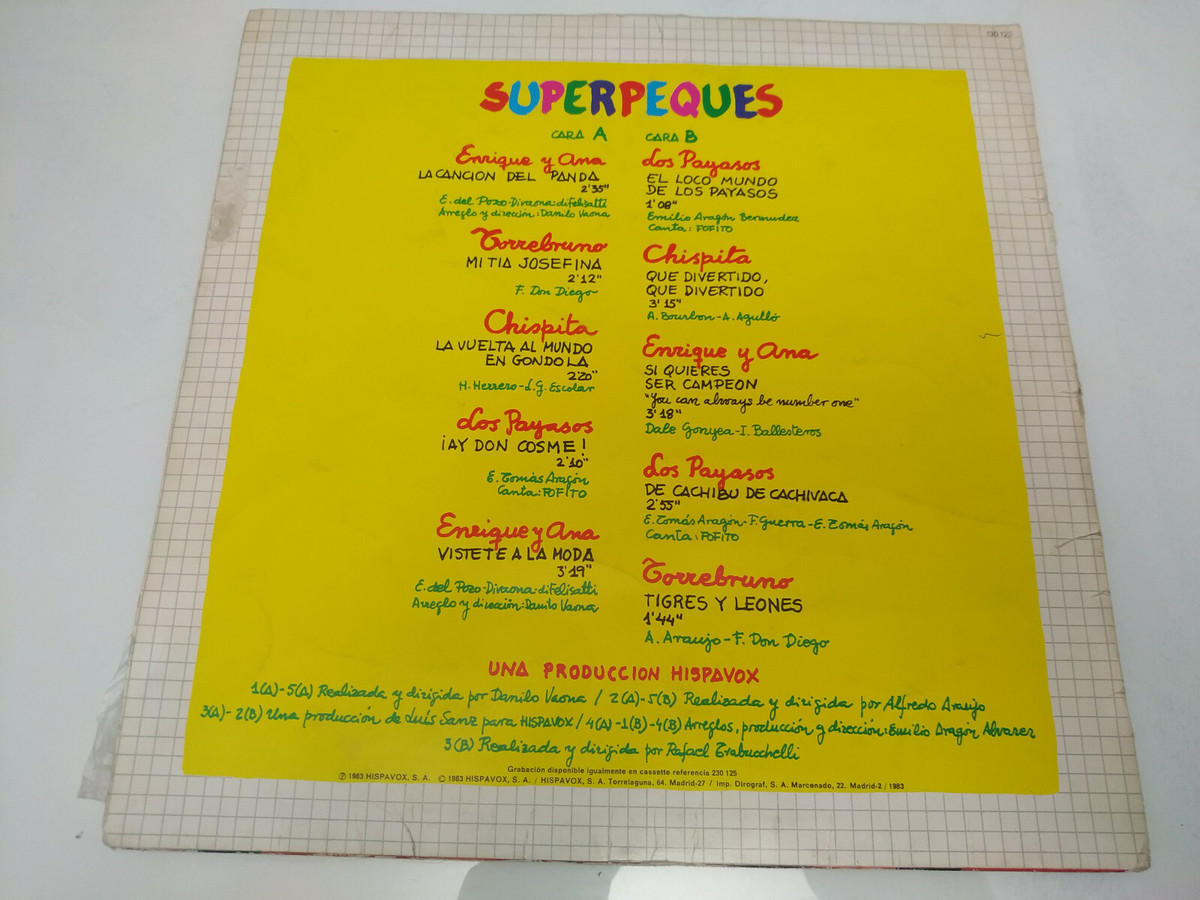 130 125
SUPERPEQUES
CARA A
Enrique y Ana
LA CANCION DEL PANDA
2'35"
E. del Pozo-Divaona:diFelisatti
Arreglo y dirección: Danilo Vaona
Torrebruno
MI TIA JOSEFINA
2'12"
F. Don Diego
Chispita
LA VUELTA AL MUNDO
EN GONDOLA
2'20"
H. Herrero-L.G. Escolar
Los Payasos
¡AY DON COSME!
2'10"
E. Tomás Aragón
Canta: FOFITO
Enrique y Ana
VISTETE A LA MODA
3'19"
E. del Pozo-Divaona:diFelisatti
Arreglo y dirección: Danilo Vaona
CARA B
Los Payasos
EL LOCO MUNDO
DE LOS PAYASOS
1'08"
Emilio Aragón Bermudez
Canta: FOFITO
Chispita
QUE DIVERTIDO,
QUE DIVERTIDO
3'15"
A. Bourbon-A. Agulló
Enrique y Ana
SI QUIERES
SER CAMPEON
"You can always be number one"
3'18"
Dale Gonyea-I. Ballesteros
Los Payasos
DE CACHIBU DE CACHIVACA
2'55"
E. Tomás Aragón-F. Guerra-E. Tomás Aragón
Canta: FOFITO
Torrebruno
TIGRES Y LEONES
1'44"
A. Araujo-F. Don Diego
UNA PRODUCCION HISPAVOX
1(A)-5(A) Realizada y dirigida por Danilo Vaona / 2(A)-5(B) Realizada y dirigida por Alfredo Araujo
3(A)-2(B) Una producción de Luis Sanz para HISPAVOX / 4(A)-1(B)-4(B) Arreglos, producción y dirección: Emilio Aragón Alvarez
3(B) Realizada y dirigida por Rafael Trabucchelli
Grabación disponible igualmente en cassette referencia 230 125
Ⓟ 1983 HISPAVOX, S. A. © 1983 HISPAVOX, S. A. / HISPAVOX, S. A. Torrelaguna, 64. Madrid-27 / Imp. Dirograf, S. A. Marcenado, 22. Madrid-2 / 1983